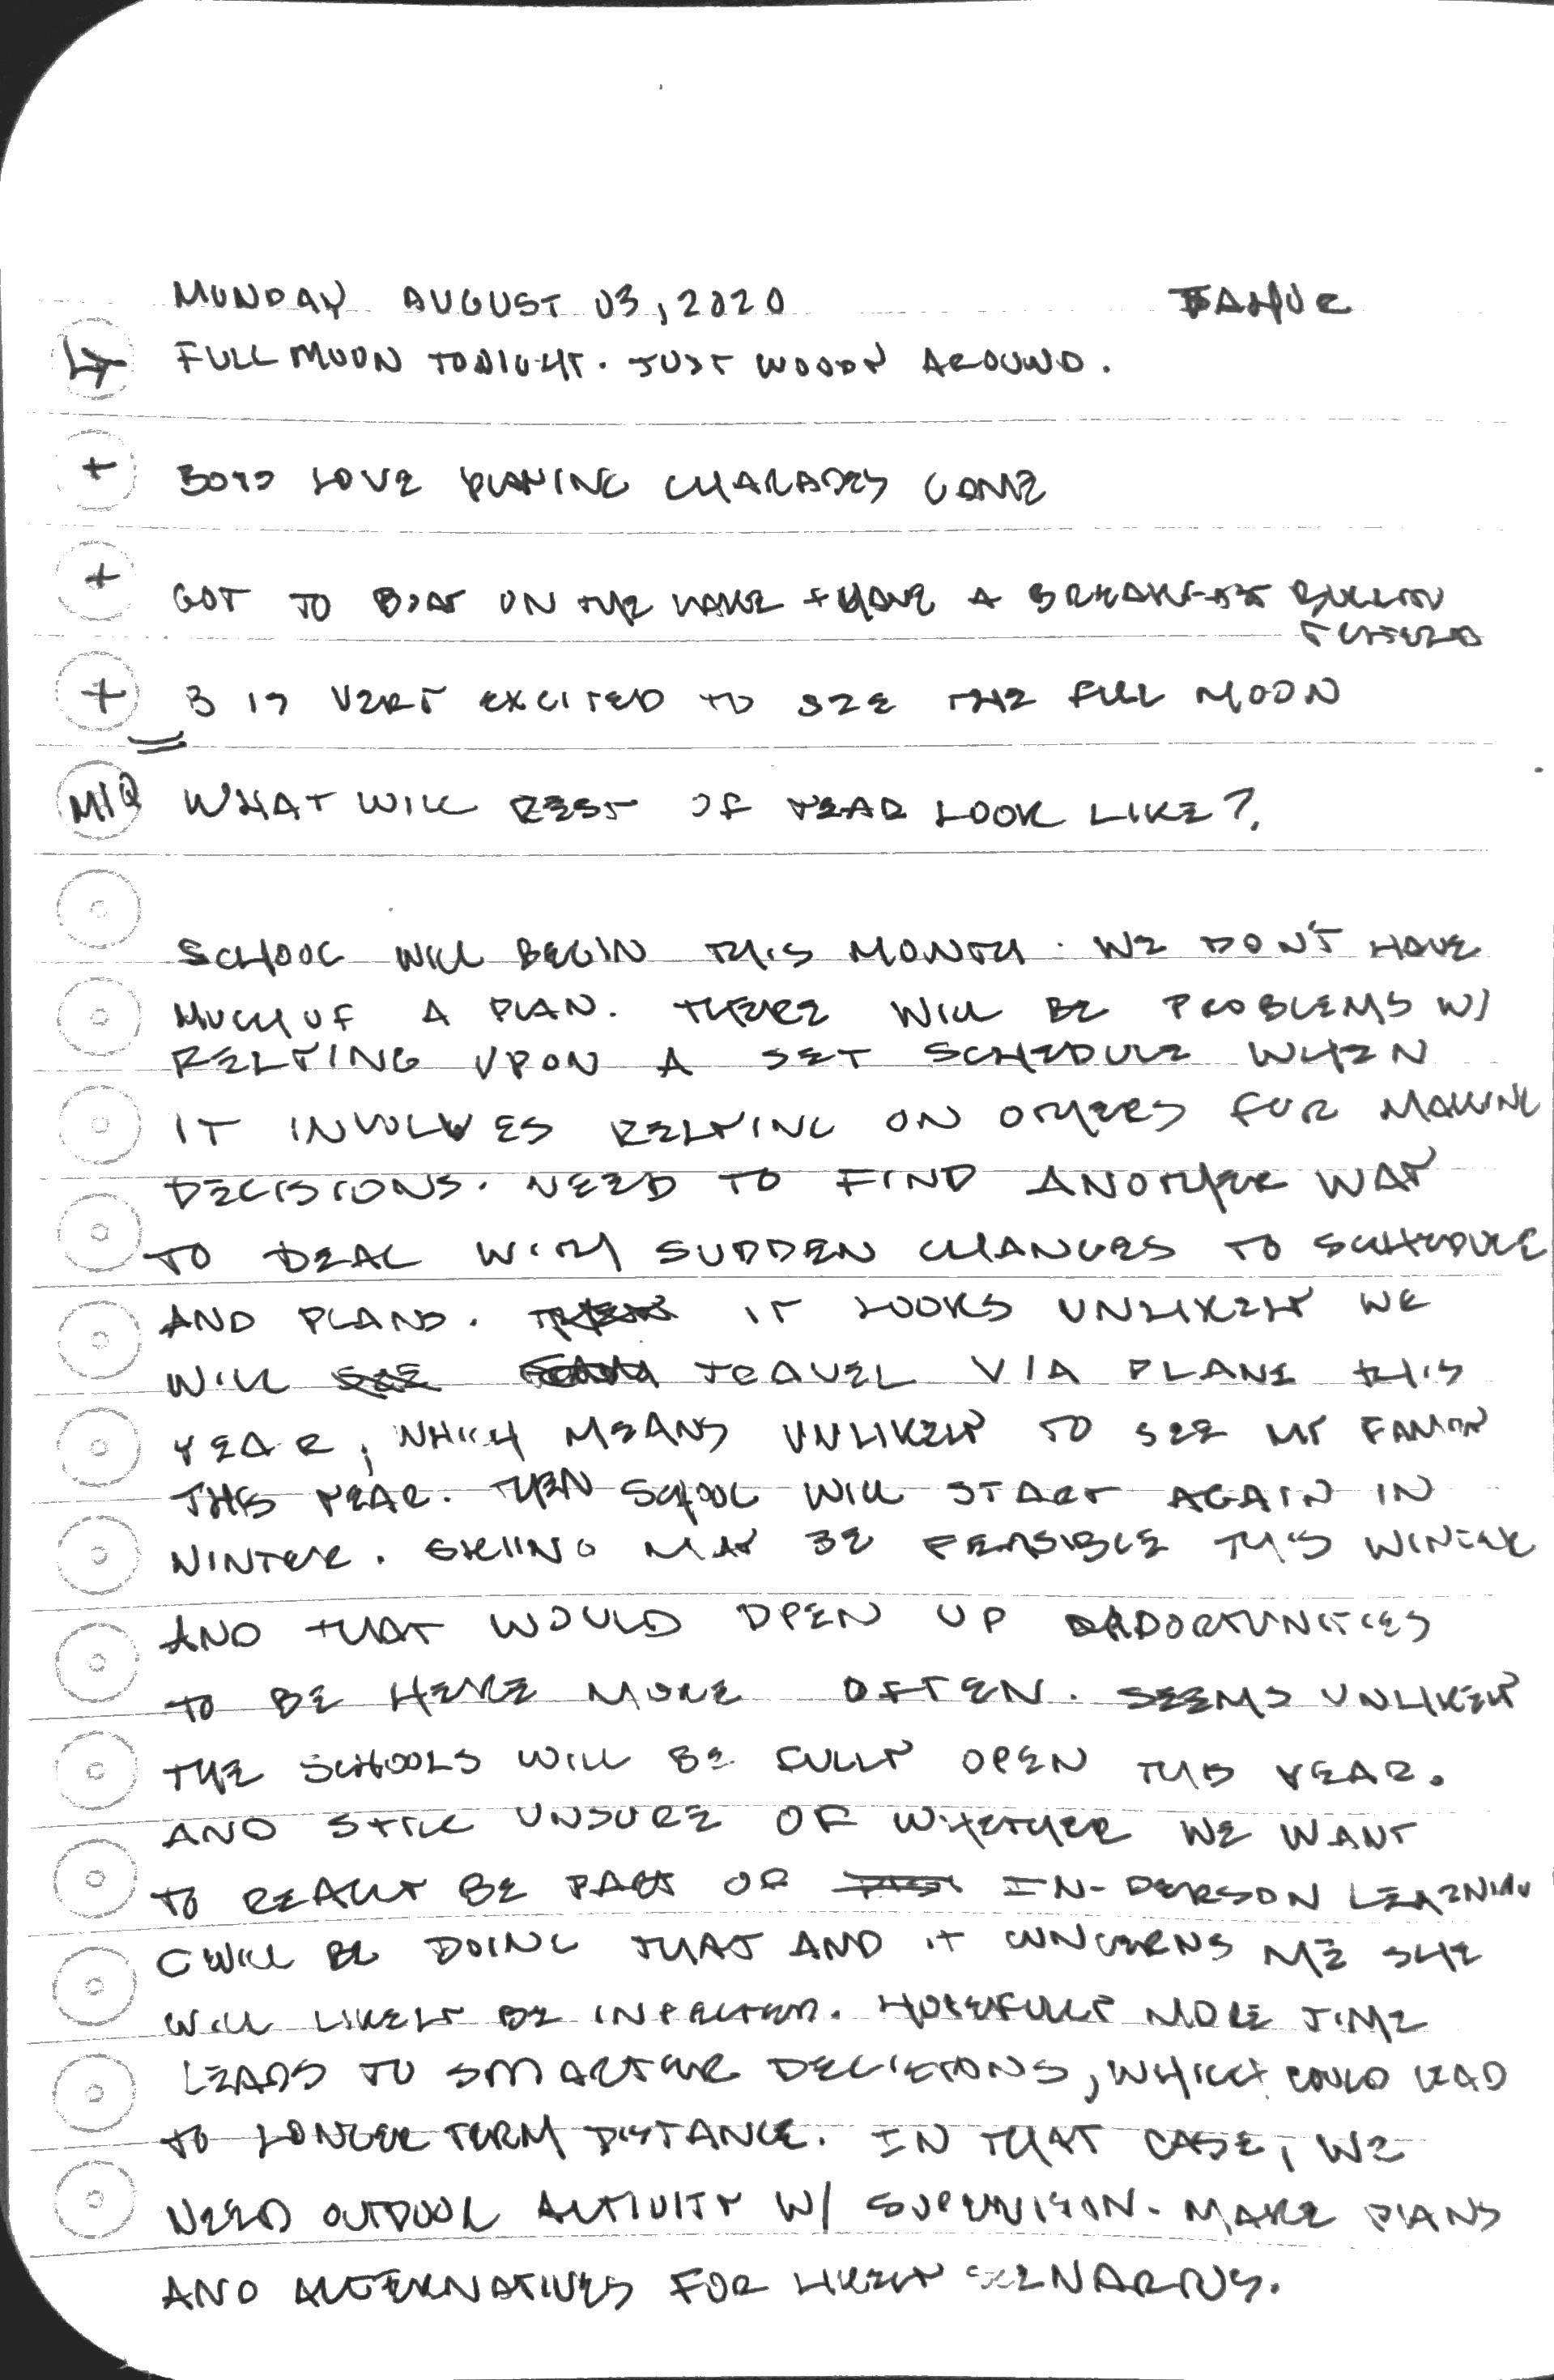 MONDAY AUGUST 03, 2020 TAHOE
L7 FULL MOON TONIGHT. JUST WOODY AROUND.
+ BOYS LOVE PLAYING CHARADES GAME
+ GOT TO BOAT ON THE LAKE + HAVE A BREAKFAST
YESTERD
+ B IS VERY EXCITED TO SEE THE FULL MOON
MIQ WHAT WILL REST OF YEAR LOOK LIKE?
SCHOOL WILL BEGIN THIS MONTH. WE DON'T HAVE
MUCH OF A PLAN. THERE WILL BE PROBLEMS W/
RELYING UPON A SET SCHEDULE WHEN
IT INVOLVES RELYING ON OTHERS FOR MAKING
DECISIONS. NEED TO FIND ANOTHER WAY
TO DEAL WITH SUDDEN CHANGES TO SCHEDULE
AND PLANS. IT LOOKS UNLIKELY WE
WILL TRAVEL VIA PLANE THIS
YEAR, WHICH MEANS UNLIKELY TO SEE MY FAMILY
THIS YEAR. THEN SCHOOL WILL START AGAIN IN
WINTER. SKIING MAY BE FEASIBLE THIS WINTER
AND THAT WOULD OPEN UP OPPORTUNITIES
TO BE HERE MORE OFTEN. SEEMS UNLIKELY
THE SCHOOLS WILL BE FULLY OPEN THIS YEAR.
AND STILL UNSURE OF WHETHER WE WANT
TO REALLY BE PART OF IN-PERSON LEARNING
C WILL BE DOING THAT AND IT CONCERNS ME SHE
WILL LIKELY BE INFECTED. HOPEFULLY MORE TIME
LEADS TO SMARTER DECISIONS, WHICH COULD LEAD
TO LONGER TERM DISTANCE. IN THAT CASE, WE
NEED OUTDOOR ACTIVITY W/ SUPERVISION. MAKE PLANS
AND ALTERNATIVES FOR LIKELY SCENARIOS.